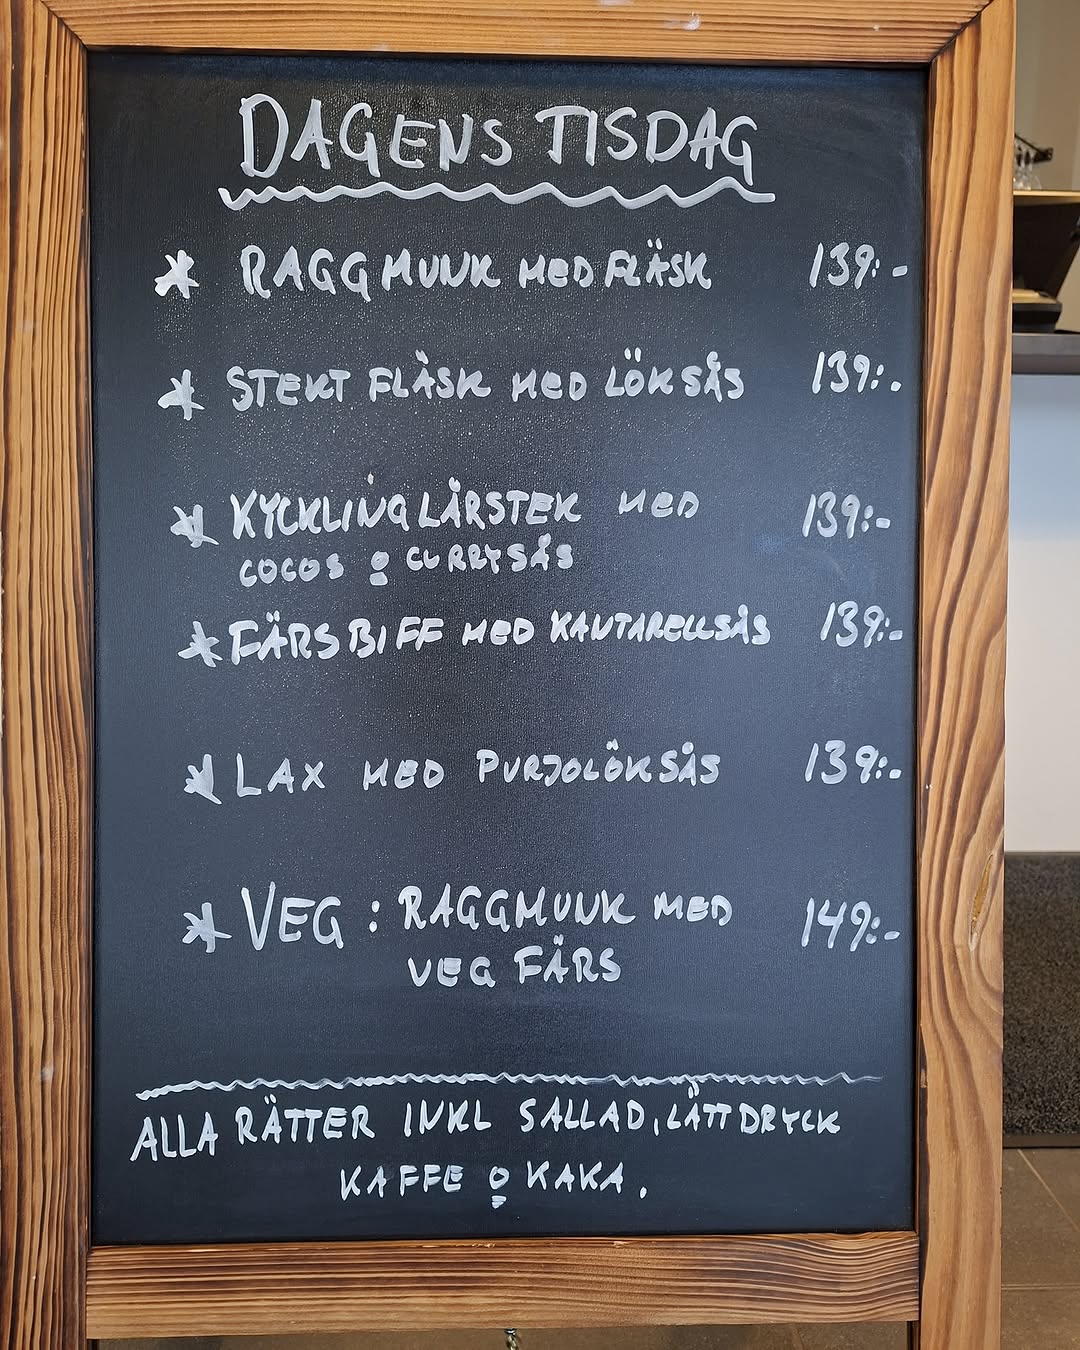 DAGENS TISDAG
* RAGGMUNK MED FLÄSK 139:-
* STEKT FLÄSK MED LÖKSÅS 139:-
* KYCKLINGLÅRSTEK MED 139:-
COCOS o CURRYSÅS
* FÄRSBIFF MED KANTARELLSÅS 139:-
* LAX MED PURJOLÖKSÅS 139:-
* VEG: RAGGMUNK MED 149:-
VEG FÄRS
ALLA RÄTTER INKL SALLAD, LÄTTDRYCK
KAFFE o KAKA.